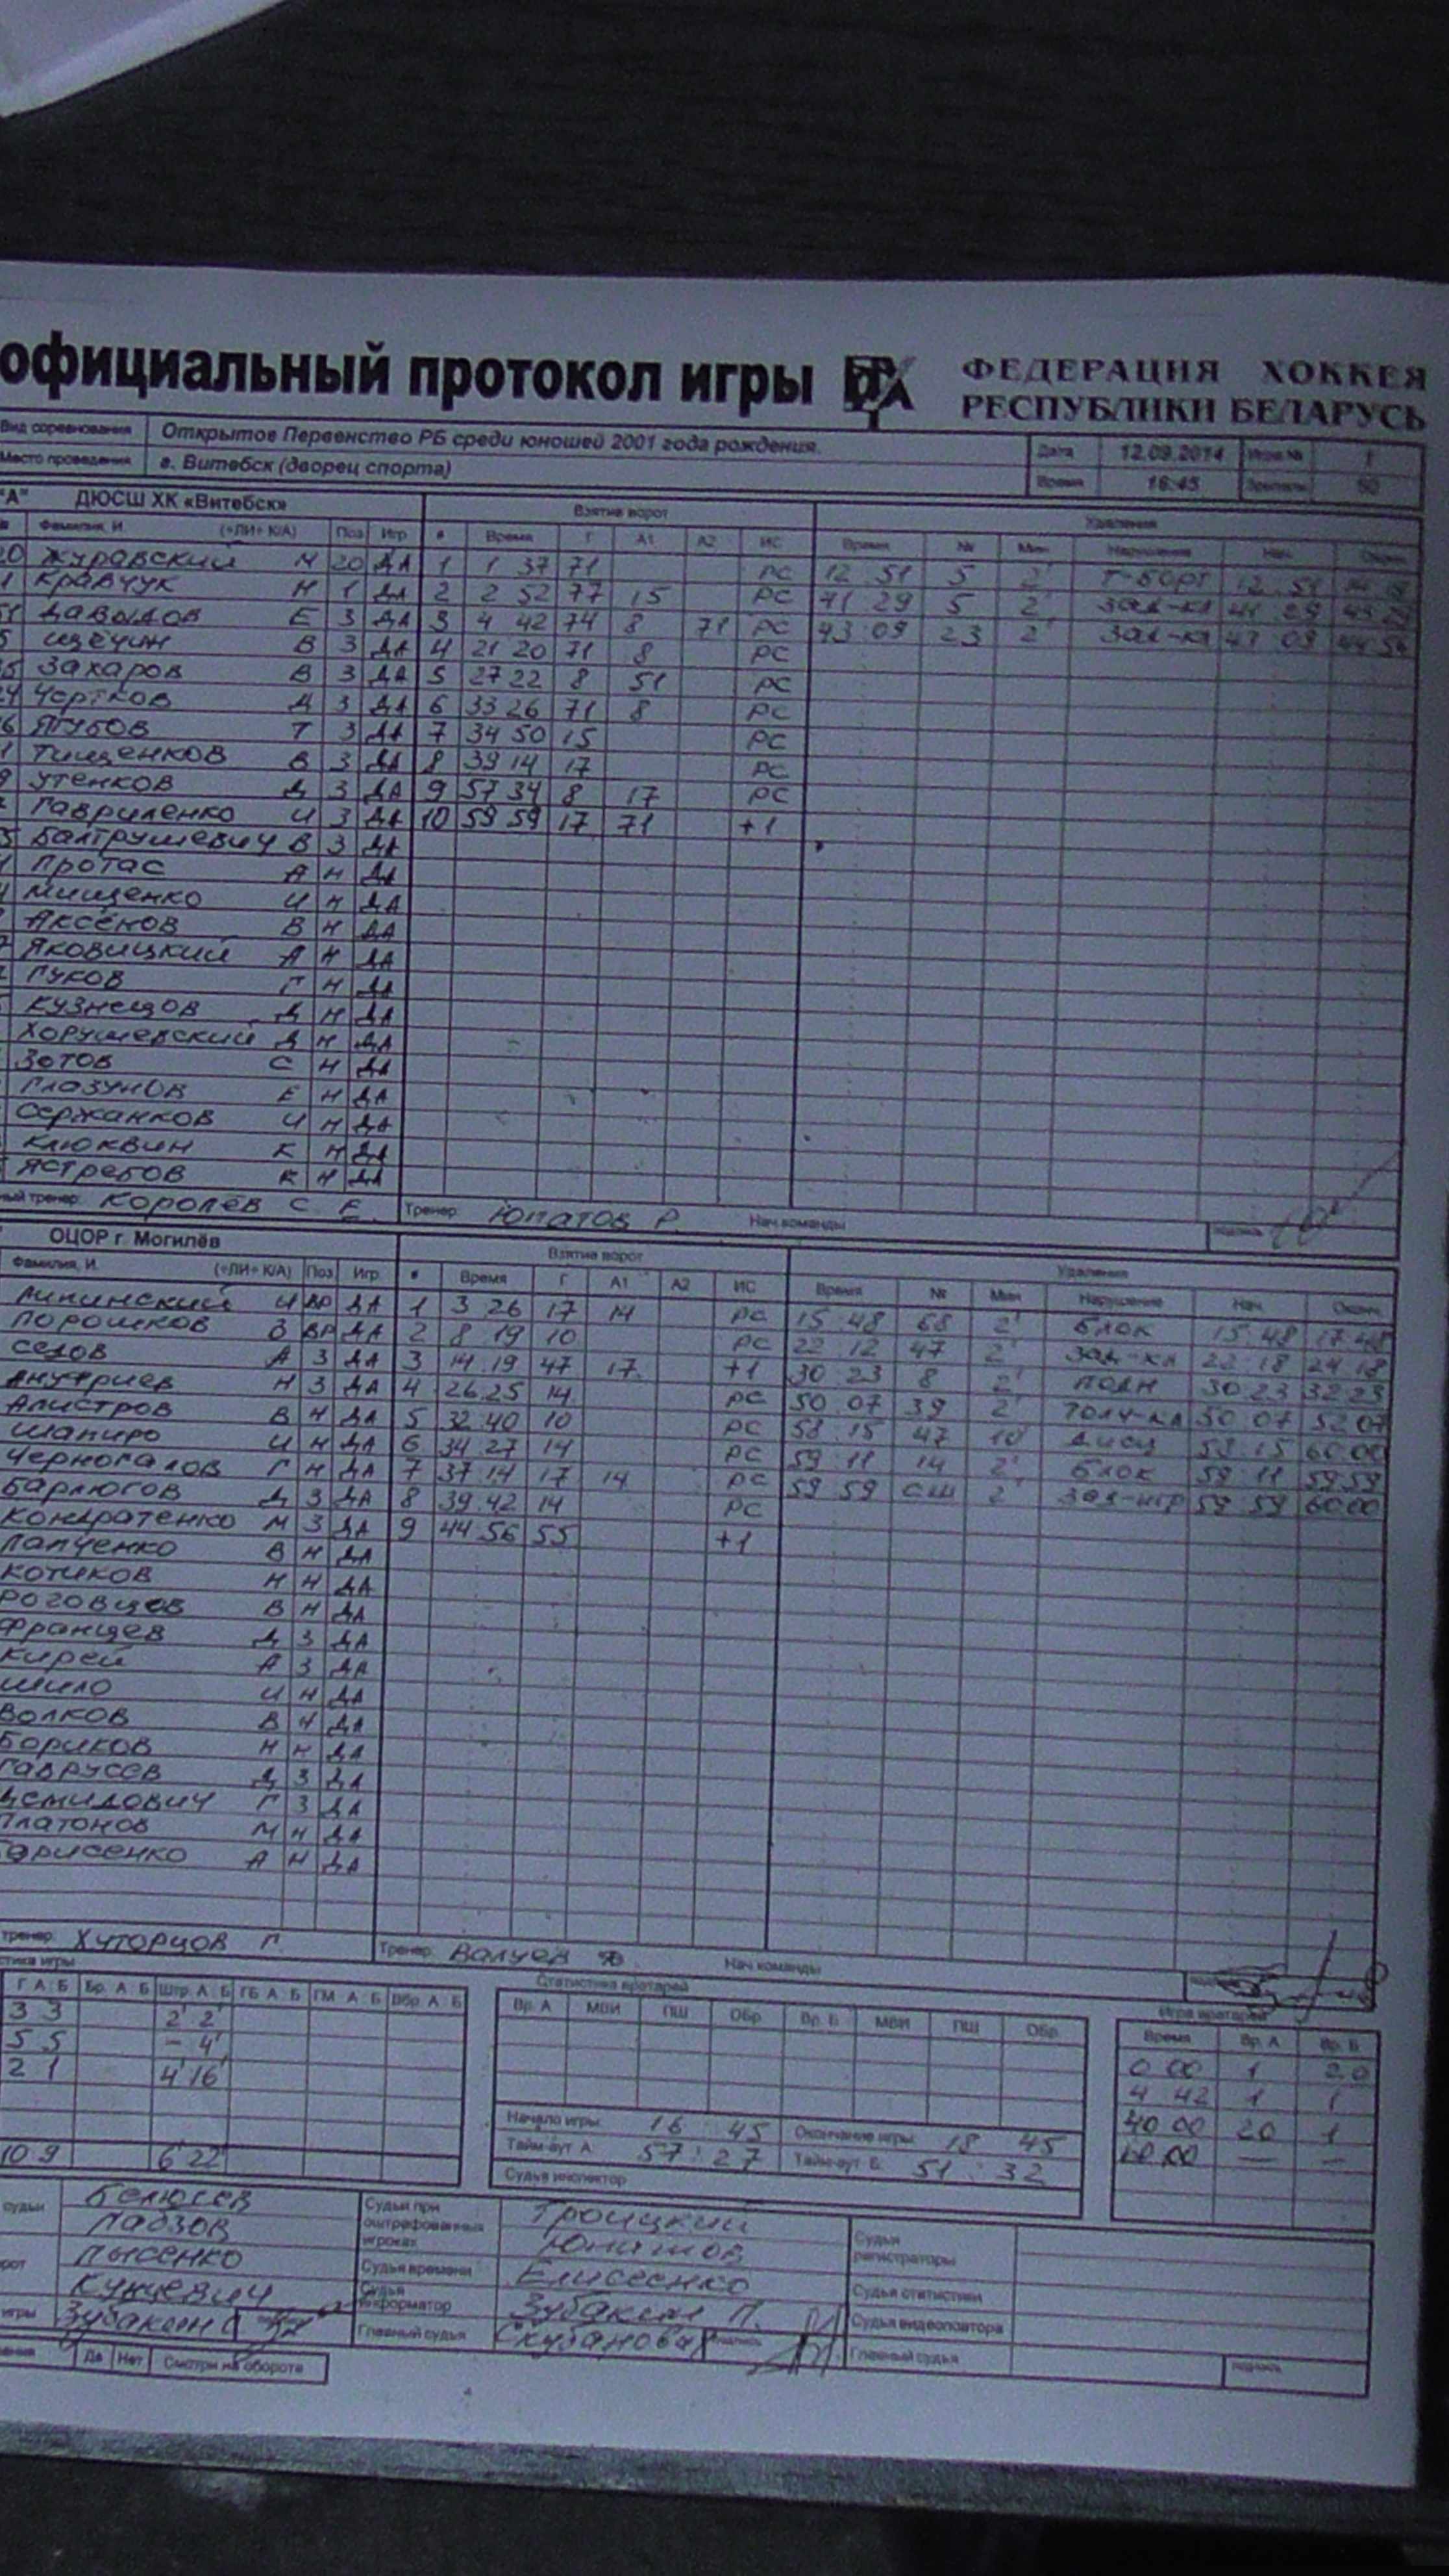 официальный протокол игры ФЕДЕРАЦИЯ ХОККЕЯ
РЕСПУБЛИКИ БЕЛАРУСЬ
Вид соревнования Открытое Первенство РБ среди юношей 2001 года рождения. Дата 12.09.2014 Игра № 1
Место проведения г. Витебск (дворец спорта) Время 16:45 Зрители 50
"А" ДЮСШ ХК «Витебск» Взятие ворот Удаления
Фамилия, И. («ЛИ» К/А) Поз Игр # Время Г А1 А2 ИС Время № Мин Нарушения Нач. Оконч.
20 Журавский М 20 ДА 1 1 37 71 РС 12 51 5 2' Т-борт 12 51
Кравчук Н 1 ДА 2 2 52 77 15 РС 41 29 5 2' зад-кл 41 29 43 29
51 Давыдов Е 3 ДА 3 4 42 74 8 71 РС 43 09 23 2' зад-кл 43 09 44 56
Щечин В 3 ДА 4 21 20 71 8 РС
Захаров В 3 ДА 5 27 22 8 51 РС
Чертков Д 3 ДА 6 33 26 71 8 РС
Ягубов Т 3 ДА 7 34 50 15 РС
Тищенков В 3 ДА 8 39 14 17 РС
Утенков Д 3 ДА 9 57 34 8 17 РС
Гавриленко И 3 ДА 10 59 59 17 71 +1
Балтрушевич В 3 ДА
Протас А Н ДА
Мищенко И Н ДА
Аксёнов В Н ДА
Яковицкий А Н ДА
Гуков Г Н ДА
Кузнецов Д Н ДА
Хорушевский Д Н ДА
Зотов С Н ДА
Глазунов Е Н ДА
Сержанков И Н ДА
Клюквин К Н ДА
Ястребов К Н ДА
тренер: Королёв С. Е. Тренер: Юпатов Р. Нач.команды подпись
ОЦОР г. Могилёв Взятие ворот Удаления
Фамилия, И. («ЛИ» К/А) Поз Игр # Время Г А1 А2 ИС Время № Мин Нарушения Нач. Оконч.
Липинский И ВР ДА 1 3 26 17 14 РС 15 48 68 2' блок 15 48 17 48
Порошков О ВР ДА 2 8 19 10 РС 22 12 47 2' зад-кл 22 18 24 18
Седов А 3 ДА 3 14 19 47 17 +1 30 23 8 2' подн 30 23 32 23
Ануфриев Н 3 ДА 4 26 25 14 РС 50 07 39 2' толч-кл 50 07 52 07
Алистров В Н ДА 5 32 40 10 РС 58 15 47 10' дисц 58 15 60 00
Шапиро И Н ДА 6 34 27 14 РС 59 11 14 2' блок 59 11 59 59
Черногалов Г Н ДА 7 37 14 17 14 РС 59 59 СШ 2' зад-игр 59 59 60 00
Барлюгов Д 3 ДА 8 39 42 14 РС
Кондратенко М 3 ДА 9 44 56 55 +1
Лапченко В Н ДА
Котиков Н Н ДА
Роговцов В Н ДА
Францев Д 3 ДА
Кирей А 3 ДА
Шило И Н ДА
Волков В Н ДА
Бориков Н Н ДА
Гаврусев Д 3 ДА
Демидович Г 3 ДА
Платонов М Н ДА
Борисенко А Н ДА
тренер: Хуторцов Г. Тренер: Валуев Нач.команды
Статистика вратарей Игра вратарей
Г А:Б Бр. А:Б Штр. А:Б ГБ А:Б ГМ А:Б Вбр. А:Б Вр. А МВИ ПШ Обр. Вр. Б МВИ ПШ Обр. Время Вр. А Вр. Б
3 3 2' 2' 0 00 1 20
5 5 – 4' 4 42 1 1
2 1 4' 16' 40 00 20 1
Начало игры: 16 45 Окончание игры: 18 45 60 00 — —
10 9 6' 22' Тайм-аут А: 57:27 Тайм-аут Б: 51:32
Судья инспектор
судьи Белюсев Судьи при оштрафованных игроках Троицкий Судьи регистраторы
Лабзов Юпатов
Лысенко Судья времени Елисеенко Судья статистик
Кунцевич Судья информатор Зубакин П. Судья видеоповтора
игры Зубакин Главный судья Скубанова подпись Главный судья подпись
Да Нет Смотри на обороте